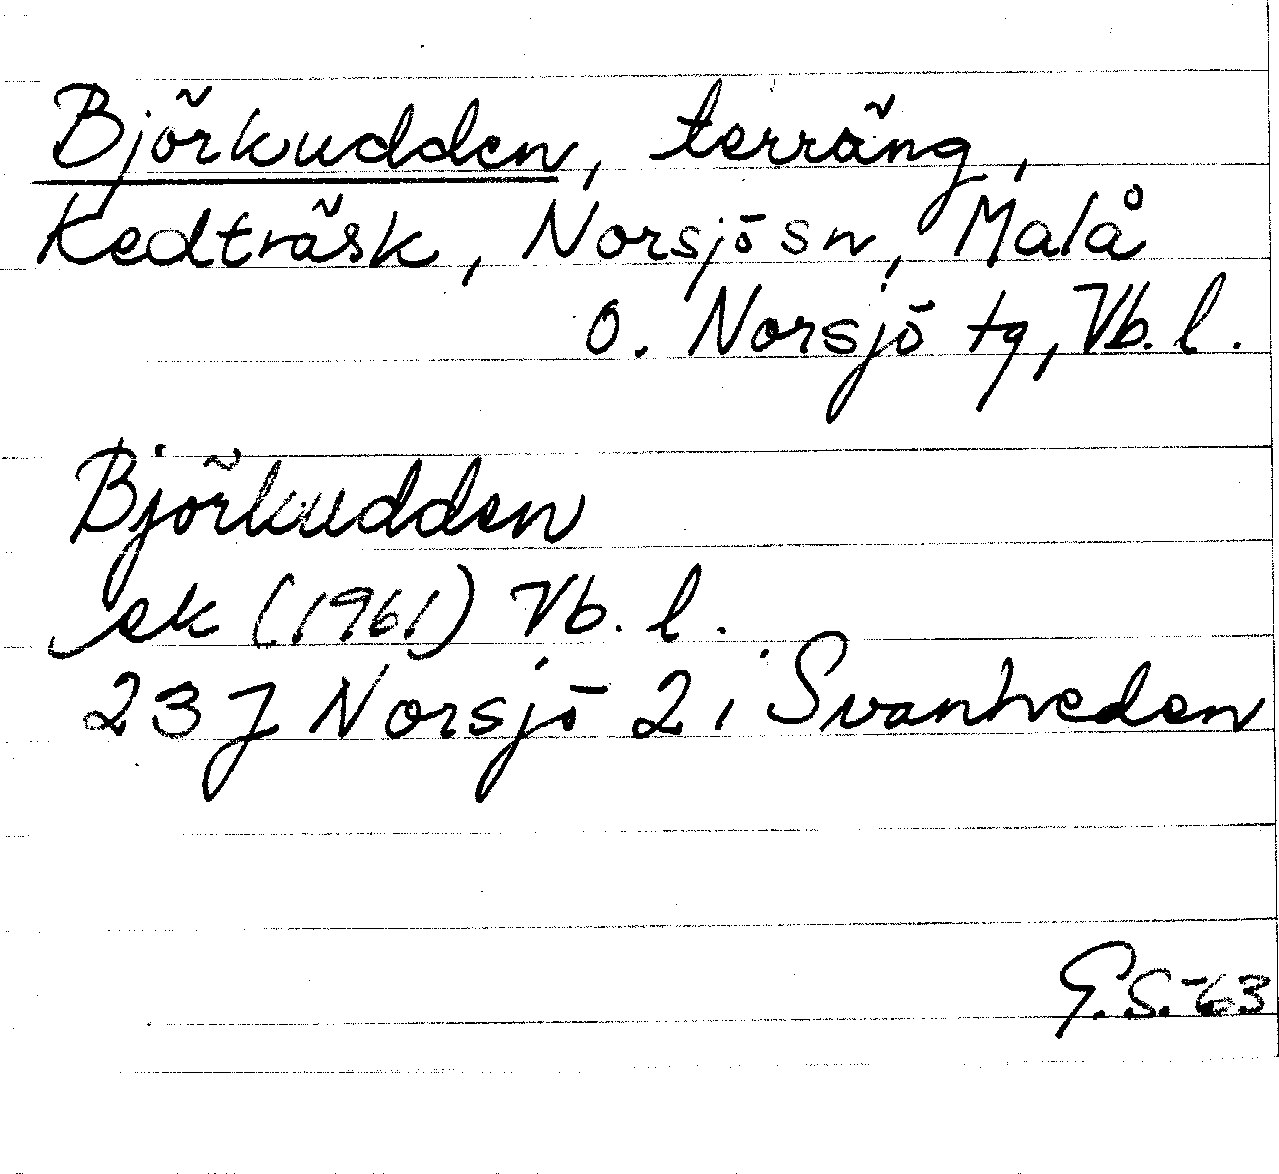 Björkudden, terräng,
Kedträsk, Norsjö sn, Malå
o. Norsjö tg, Vb. l.
Björkudden
ek (1961) Vb. l.
23 J Norsjö 2 i Svanheden
G.S.-63